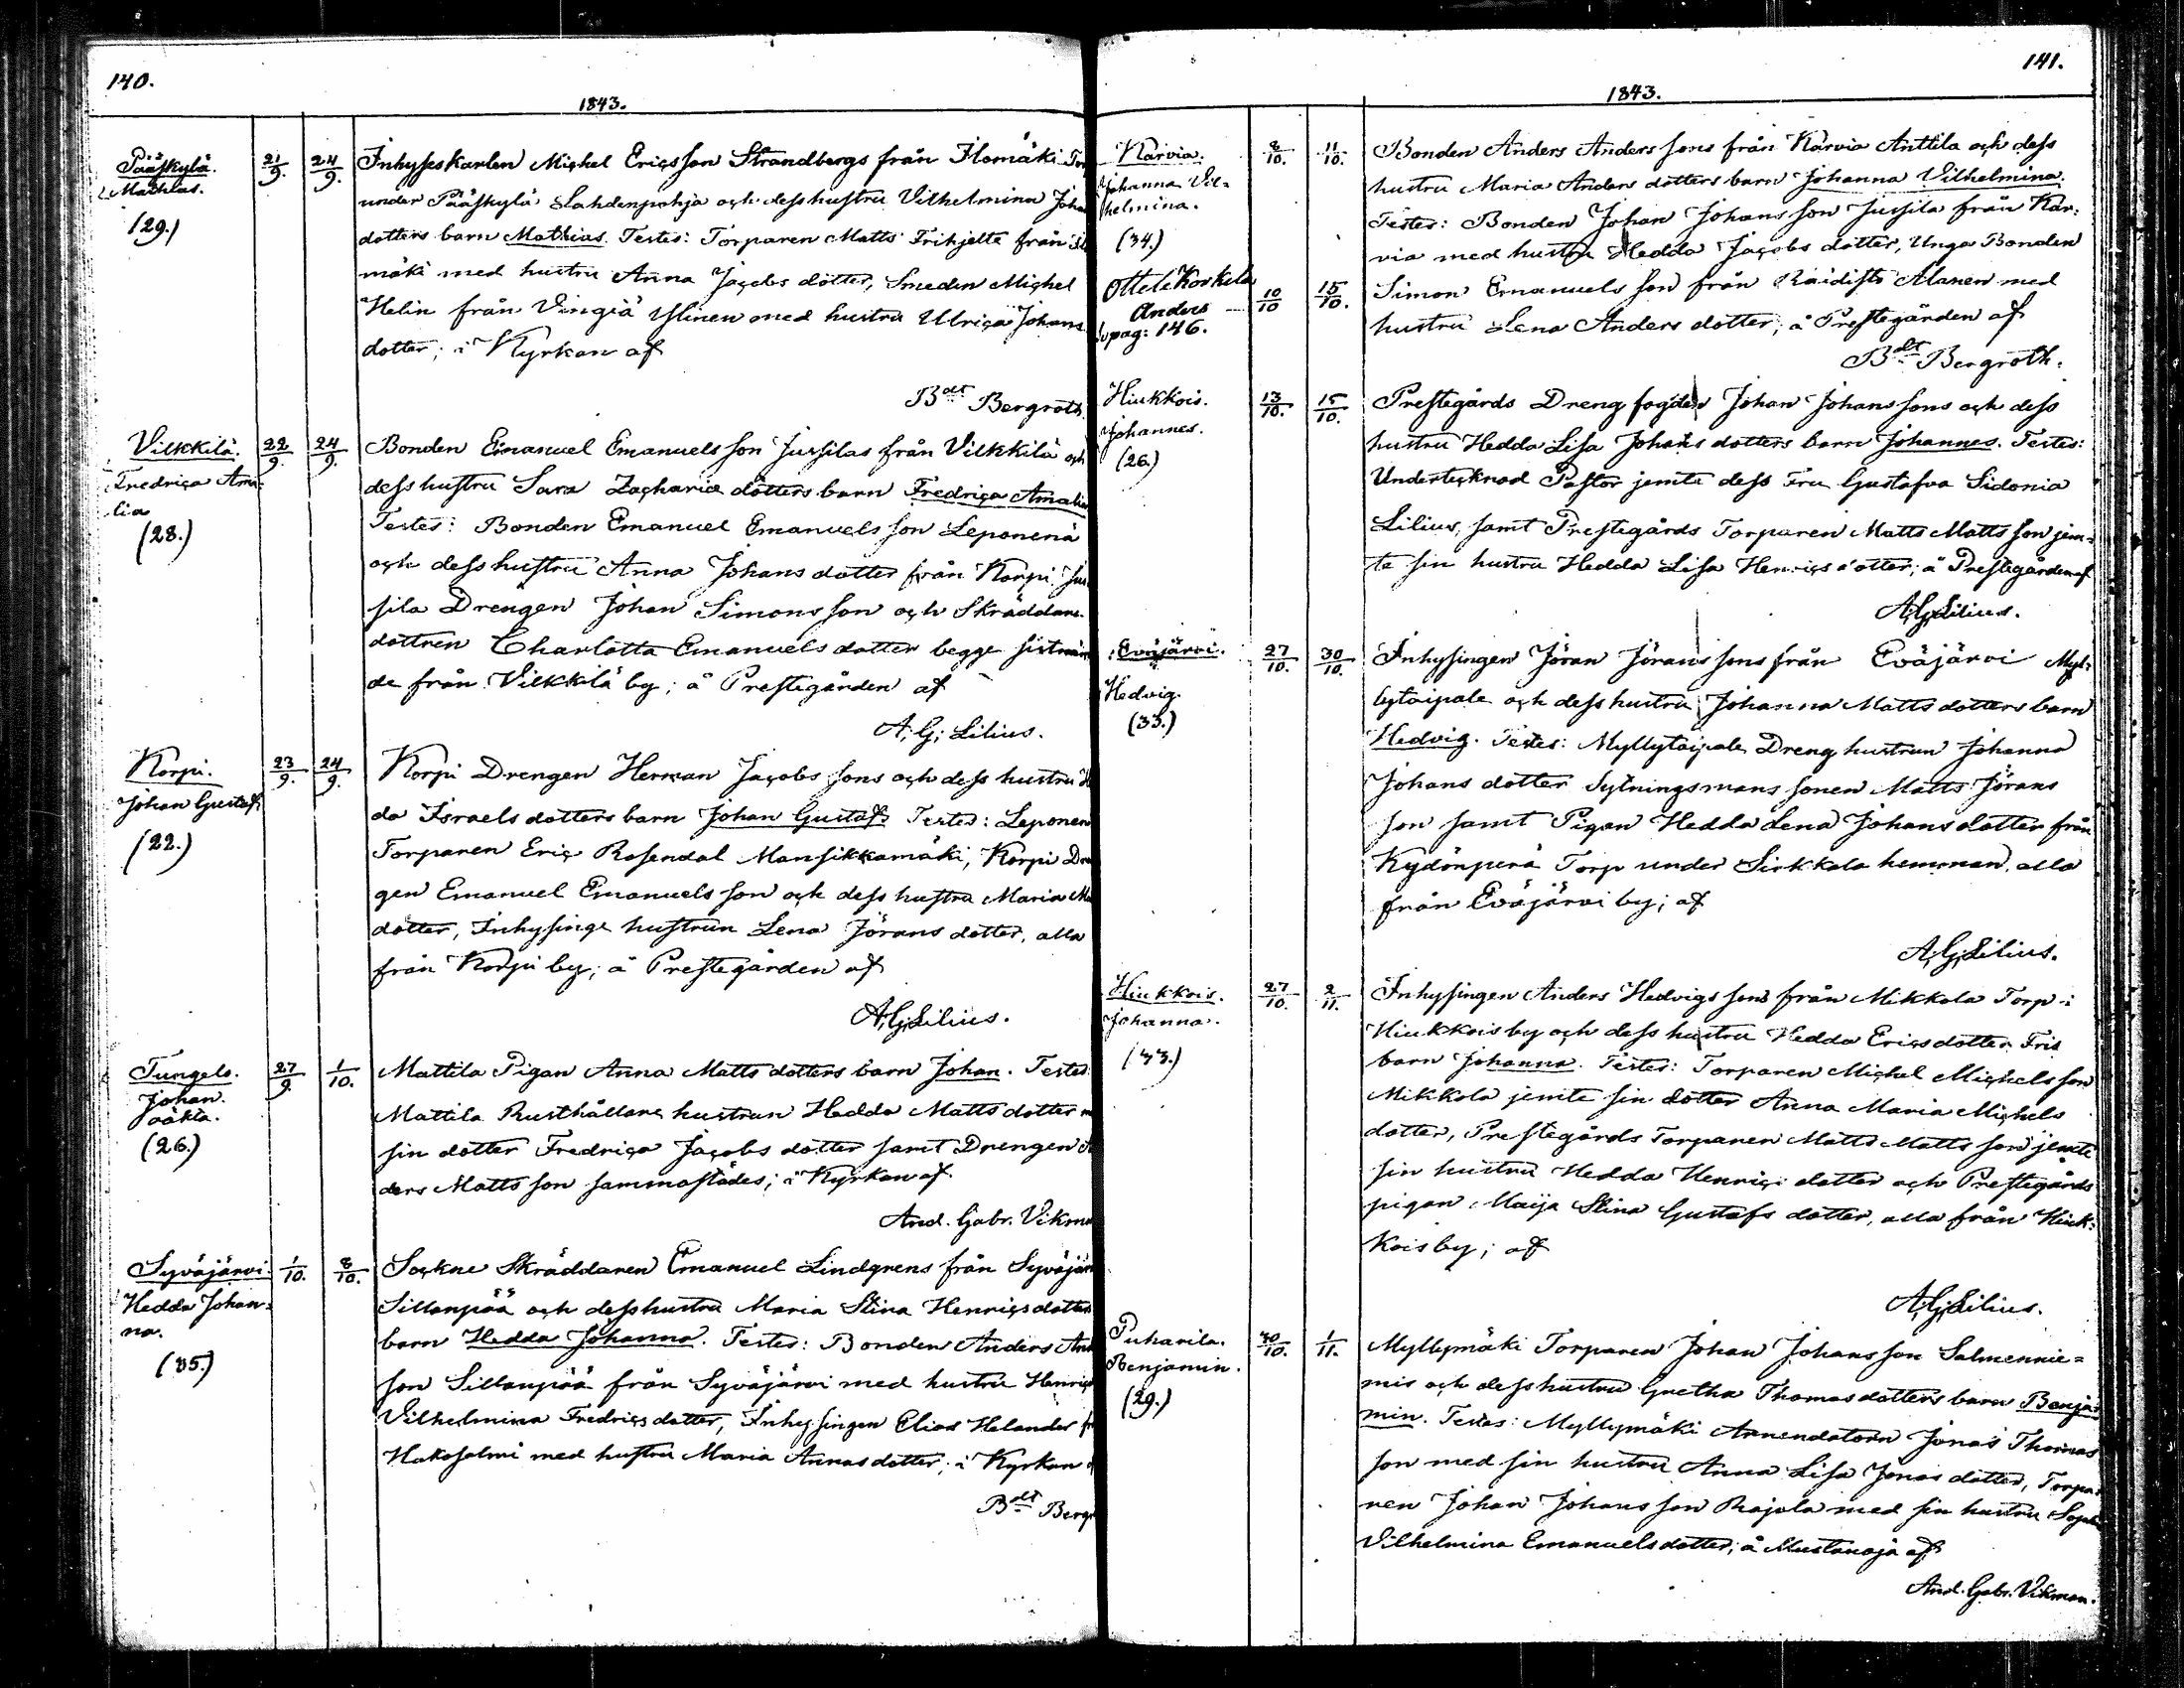 140.
1843.
Pääskylä.
Mathias.
(29.)
21/9.
24/9.
Inhysseskarlen Michel Ericsson Strandbergs från Ilomäki Tor
under Pääskylä Lahdenpohja och dess hustru Vilhelmina Johan
dotters barn Mathias. Testes: Torparen Matts Frihjelte från Ilo
mäki med hustru Anna Jacobs dotter, Smeden Michel
Helin från Vingiä Ylinen med hustru Ulrica Johans
dotter; i Kyrkan af
Bdt Bergroth.
Vilkkilä.
Fredrica Ama-
lia
(28.)
22/9.
24/9.
Bonden Emanuel Emanuels son Jussilas från Vilkkilä och
dess hustru Sara Zachariæ dotters barn Fredrica Amalia
Testes: Bonden Emanuel Emanuels son Leponenä
och dess hustru Anna Johans dotter från Korpi, Jus
sila Drengen Johan Simons son och Skräddare
dottren Charlotta Emanuels dotter begge sistnäm
de från Vilkkilä by; å Prestegården af
A; G; Lilius.
Korpi.
Johan Gustaf.
(22.)
23/9.
24/9.
Korpi Drengen Herman Jacobs sons och dess hustru He
da Israels dotters barn Johan Gustaf. Testes: Leponen
Torparen Eric Rosendal Mansikkamäki, Korpi Dren
gen Emanuel Emanuels son och dess hustru Maria Ma
dotter, Inhysinge hustrun Lena Jörans dotter, alla
från Korpi by; å Prestegården af
A; G; Lilius.
Tungelo.
Johan.
oäkta.
(26.)
27/9
1/10.
Mattila Pigan Anna Matts dotters barn Johan. Testes:
Mattila Rusthållare hustrun Hedda Matts dotter m
sin dotter Fredrica Jacobs dotter samt Drengen An
ders Matts son sammastädes; i Kyrkan af.
And. Gabr. Vikman
Syväjärvi.
Hedda Johan-
na.
(35.)
1/10.
8/10.
Sockne Skräddaren Emanuel Lindgrens från Syväjärvi
Sillanpää och dess hustru Maria Stina Henrics dotters
barn Hedda Johanna. Testes: Bonden Anders And
son Sillanpää från Syväjärvi med hustru Henrica
Vilhelmina Fredrics dotter, Inhysingen Elias Helander fr
Hakosalmi med hustru Maria Annas dotter; i Kyrkan a
Bdt Bergr
141.
1843.
Karvia.
Johanna Vil-
helmina.
(34.)
8/10.
11/10.
Bonden Anders Anders sons från Karvia Anttila och dess
hustru Maria Anders dotters barn Johanna Vilhelmina.
Testes: Bonden Johan Johans son Jussila från Kar-
via med hustru Hedda Jacobs dotter, Unga Bonden
Simon Emanuels son från Raidisto Alanen med
hustru Lena Anders dotter; å Prestegården af
Bdt Bergroth.
Ottele Koskela
Anders
pag: 146.
10/10
15/10.
Hiukkois.
Johannes.
(26.)
13/10.
15/10.
Prestegårds Dreng fogden Johan Johans sons och dess
hustru Hedda Lisa Johans dotters barn Johannes. Testes:
Undertecknad Pastor jemte dess Fru Gustafva Sidonia
Lilius, samt Prestegårds Torparen Matts Matts son jem-
te sin hustru Hedda Lisa Henrics dotter; å Prestegården af
A; G; Lilius.
Eväjärvi.
Hedvig.
(33.)
27/10.
30/10.
Inhysingen Jöran Jörans sons från Eväjärvi Myl-
lytaipale och dess hustru Johanna Matts dotters barn
Hedvig. Testes: Myllytaipale Dreng hustrun Johanna
Johans dotter Sytningsmans sonen Matts Jörans
son samt Pigan Hedda Lena Johans dotter från
Kydönperä Torp under Sirkkala hemman, alla
från Eväjärvi by; af
A; G; Lilius.
Hiukkois.
Johanna.
(33.)
27/10.
2/11.
Inhysingen Anders Hedvigs sons från Mikkola Torp i
Hiukkois by och dess hustru Hedda Erics dotter Fris
barn Johanna. Testes: Torparen Michel Michels son
Mikkola jemte sin dotter Anna Maria Michels
dotter, Prestegårds Torparen Matts Matts son jemte
sin hustru Hedda Henrics dotter och Prestegårds
pigan Maija Stina Gustafs dotter, alla från Hiuk-
kois by; af
A; G; Lilius.
Puharila.
Benjamin.
(29.)
30/10.
1/11.
Myllymäki Torparen Johan Johans son Salmennie-
mis och dess hustru Gretha Thomas dotters barn Benja-
min. Testes: Myllymäki Arrendatorn Jonas Thomas
son med sin hustru Anna Lisa Jonas dotter, Torpa-
ren Johan Johans son Rajala med sin hustru Sophia
Vilhelmina Emanuels dotter; å Mustanoja af
And. Gabr. Vikman.